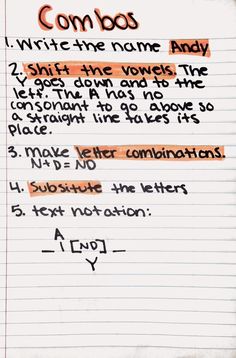 Combos
1. Write the name Andy
2. Shift the vowels. The
Y goes down and to the
left. The A has no
consonant to go above so
a straight line takes its
place.
3. Make letter combinations.
N+D=ND
4. Subsitute the letters
5. text notation:
A
_ | [ND] _
Y